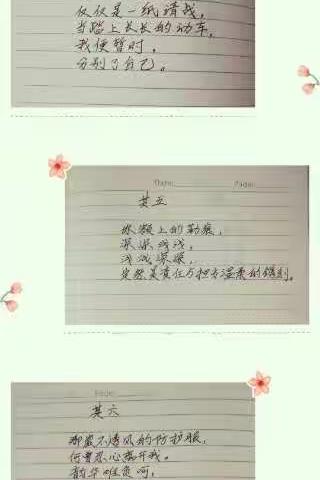 仅仅是一纸请战，
当踏上长长的动车，
我便暂时，
分别了自己。
Date:
Page:
其五
你颊上的勒痕，
深深浅浅，
浅浅深深，
定然是责任与担当温柔的镌刻。
其六
那密不透风的防护服，
何曾忍心离开我。
韵华唯负呵，